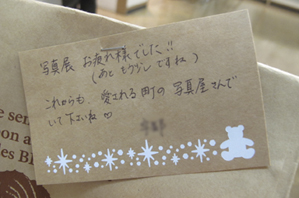 写真展 お疲れ様でした!!
(あともう少しですね)
これからも、愛される町の写真屋さんで
いて下さいね♡